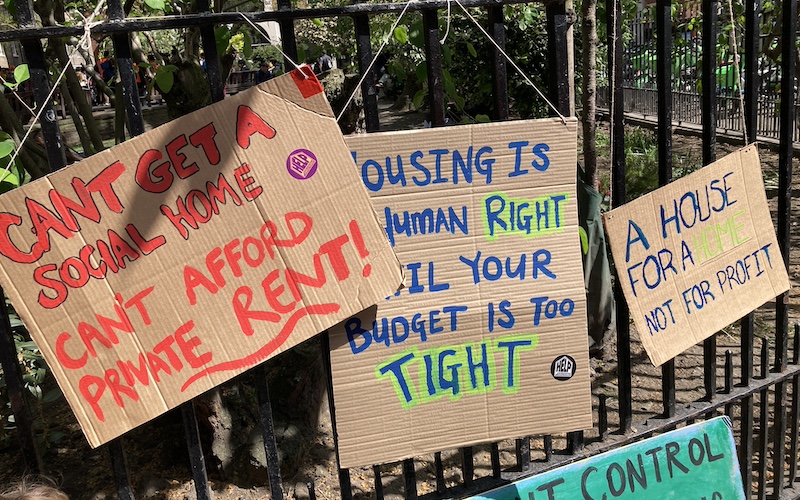 CAN'T GET A
SOCIAL HOME
CAN'T AFFORD
PRIVATE RENT!
HELP
HOUSING IS
HUMAN RIGHT
YOUR
BUDGET IS TOO
TIGHT
HELP
A HOUSE
FOR A HOME
NOT FOR PROFIT
CONTROL